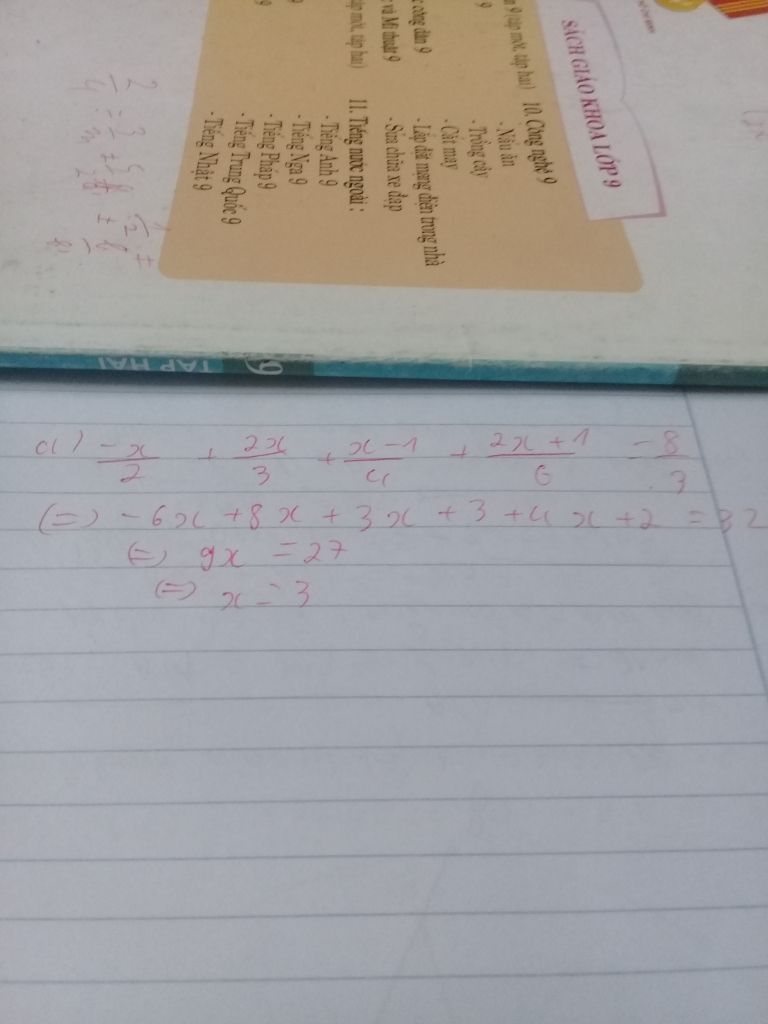 SÁCH GIÁO KHOA LỚP 9
n 9 (tập một, tập hai)
9
c công dân 9
và Mĩ thuật 9
ập một, tập hai)
9
10. Công nghệ 9
- Nấu ăn
- Trồng cây
- Cắt may
- Lắp đặt mạng điện trong nhà
- Sửa chữa xe đạp
11. Tiếng nước ngoài :
- Tiếng Anh 9
- Tiếng Nga 9
- Tiếng Pháp 9
- Tiếng Trung Quốc 9
- Tiếng Nhật 9
9
TẬP HAI
a) -x/2 + 2x/3 + x-1/4 + 2x+1/6 = 8/3
(=) -6x + 8x + 3x + 3 + 4x + 2 = 32
(=) 9x = 27
(=) x = 3